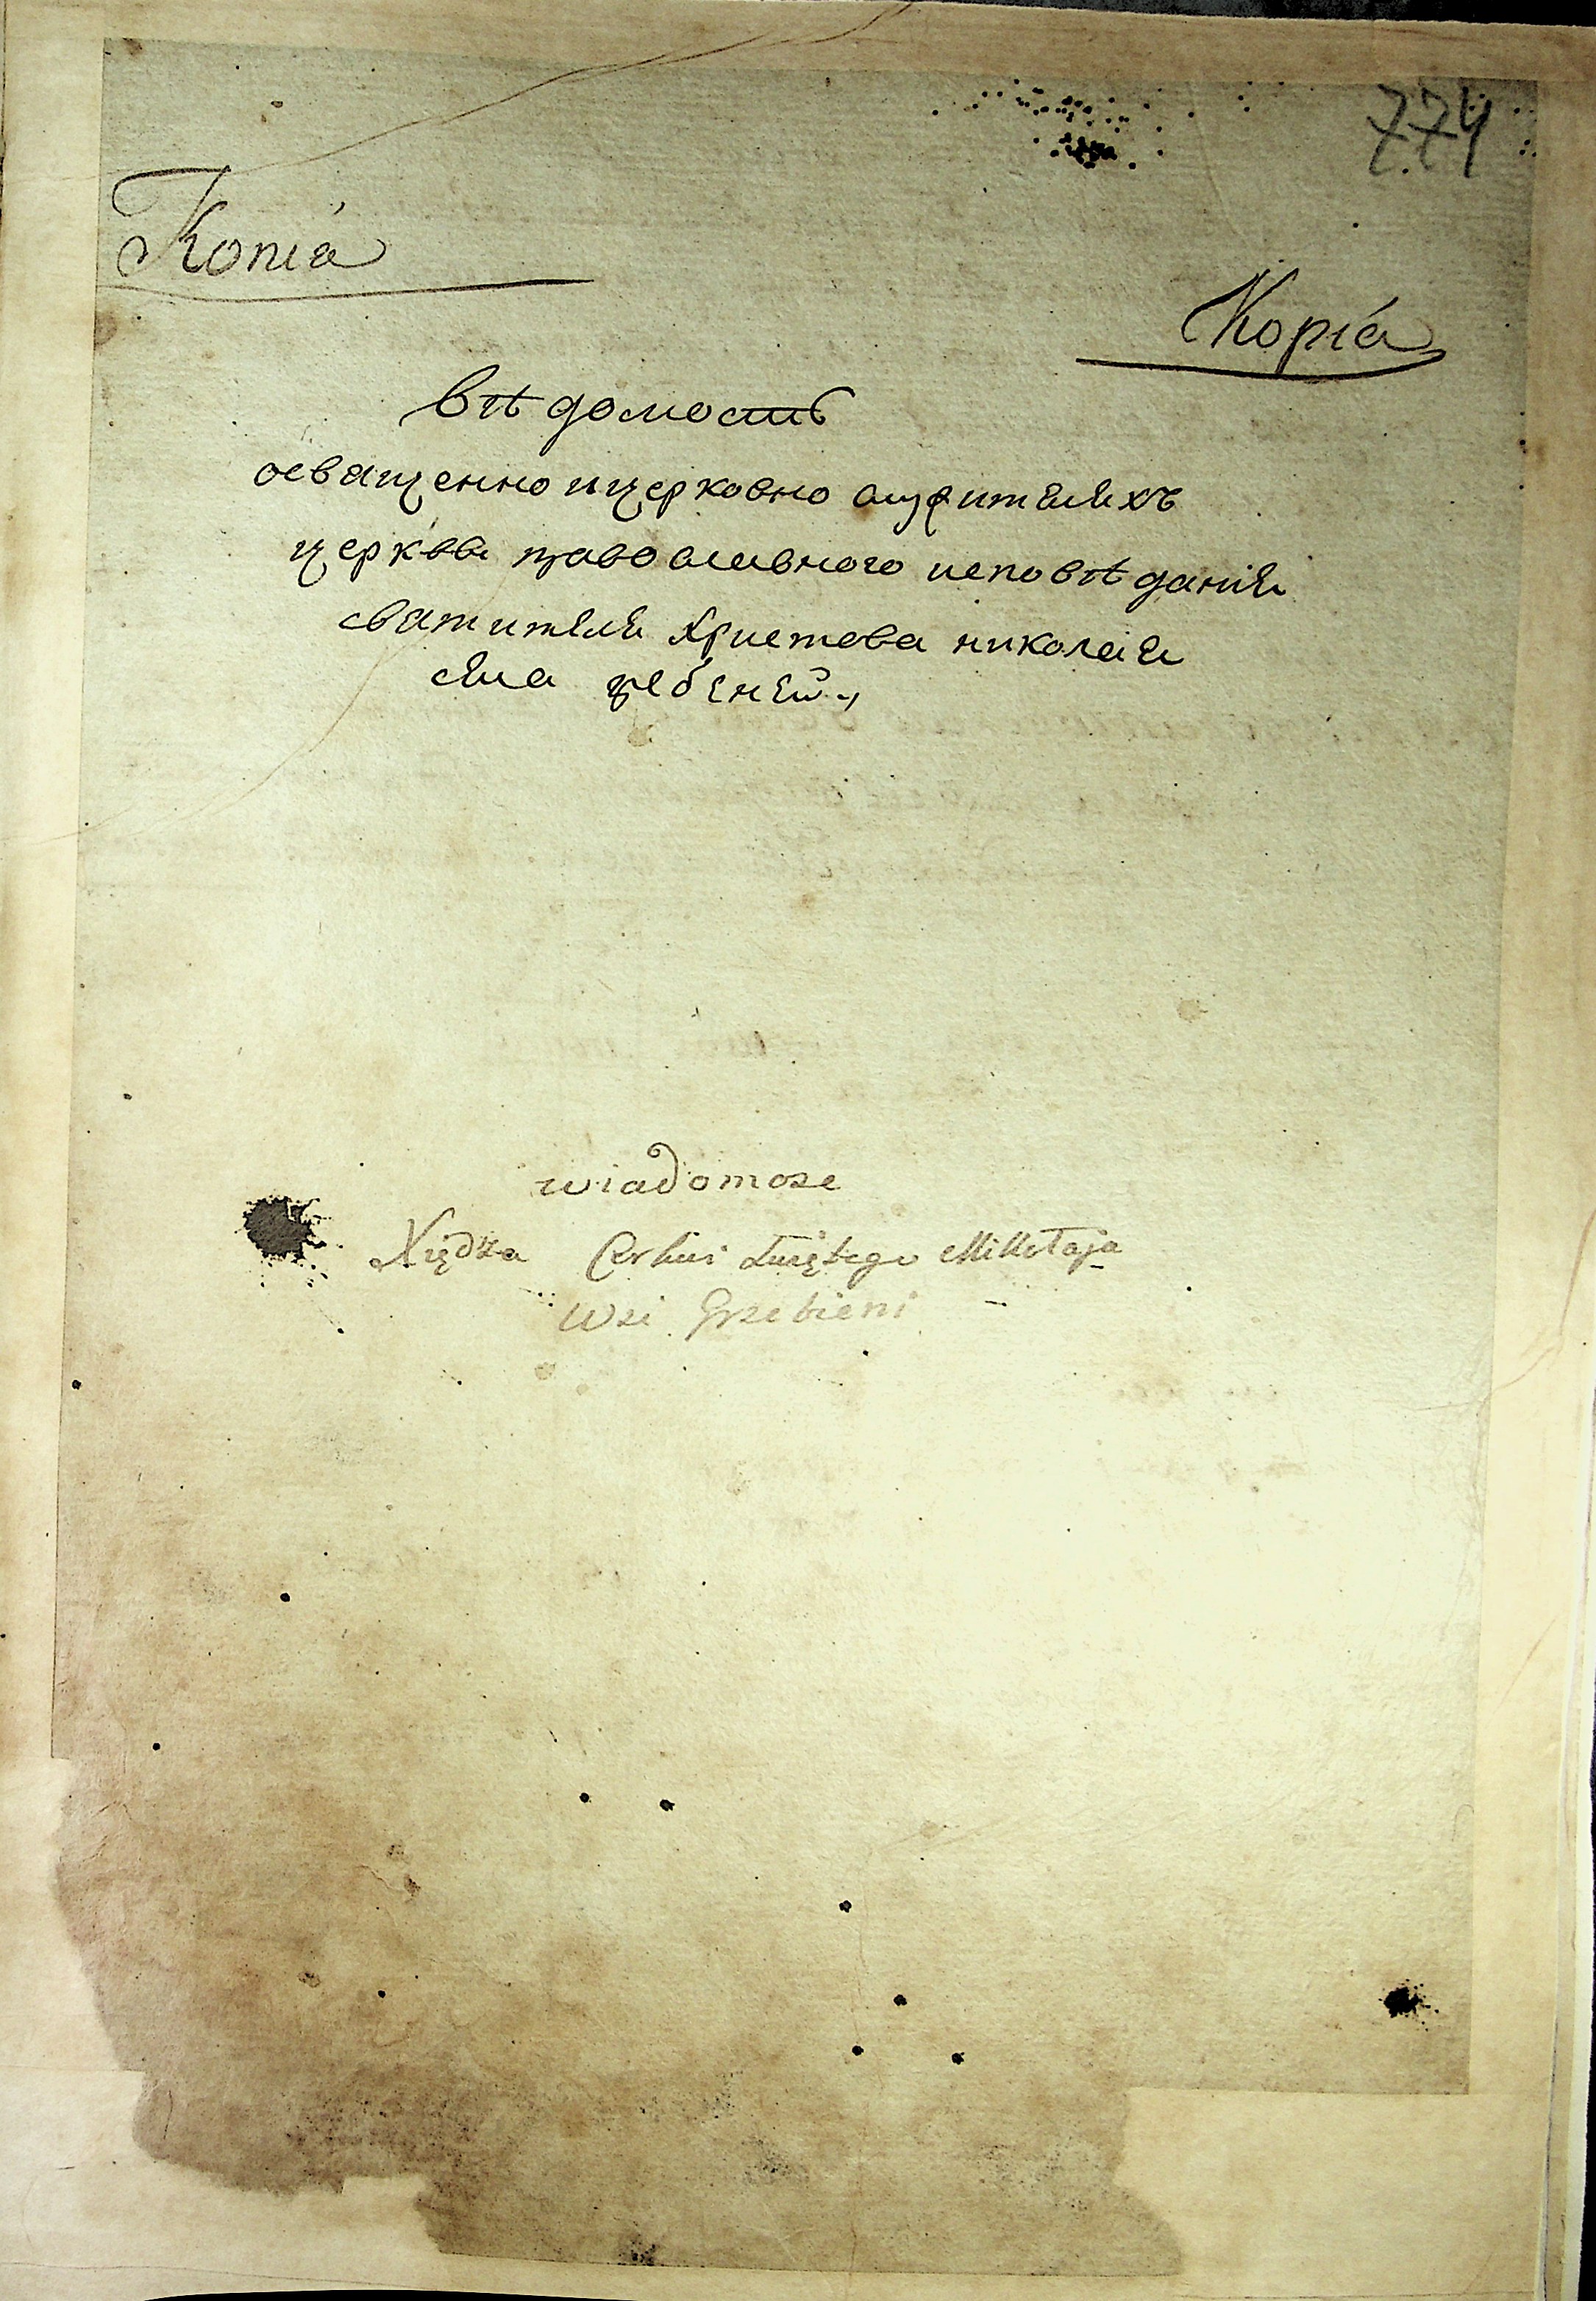 774
Копіа
Kopia
вѣдомость
освященно и церковно служителехъ
церкви православного исповѣданія
святителя Христова николая
села гребеней
wiadomosc
Xiędza Cerkwi Swiętego Mikołaja
Wsi Grzebieni